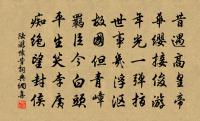 昔遇高皇帝
華纓接俊游
年光一彈指
世事幾浮漚
故國但青嶂
羈臣今白頭
平生笑李廣
癡絕望封侯
陸游懷昔詞典網專